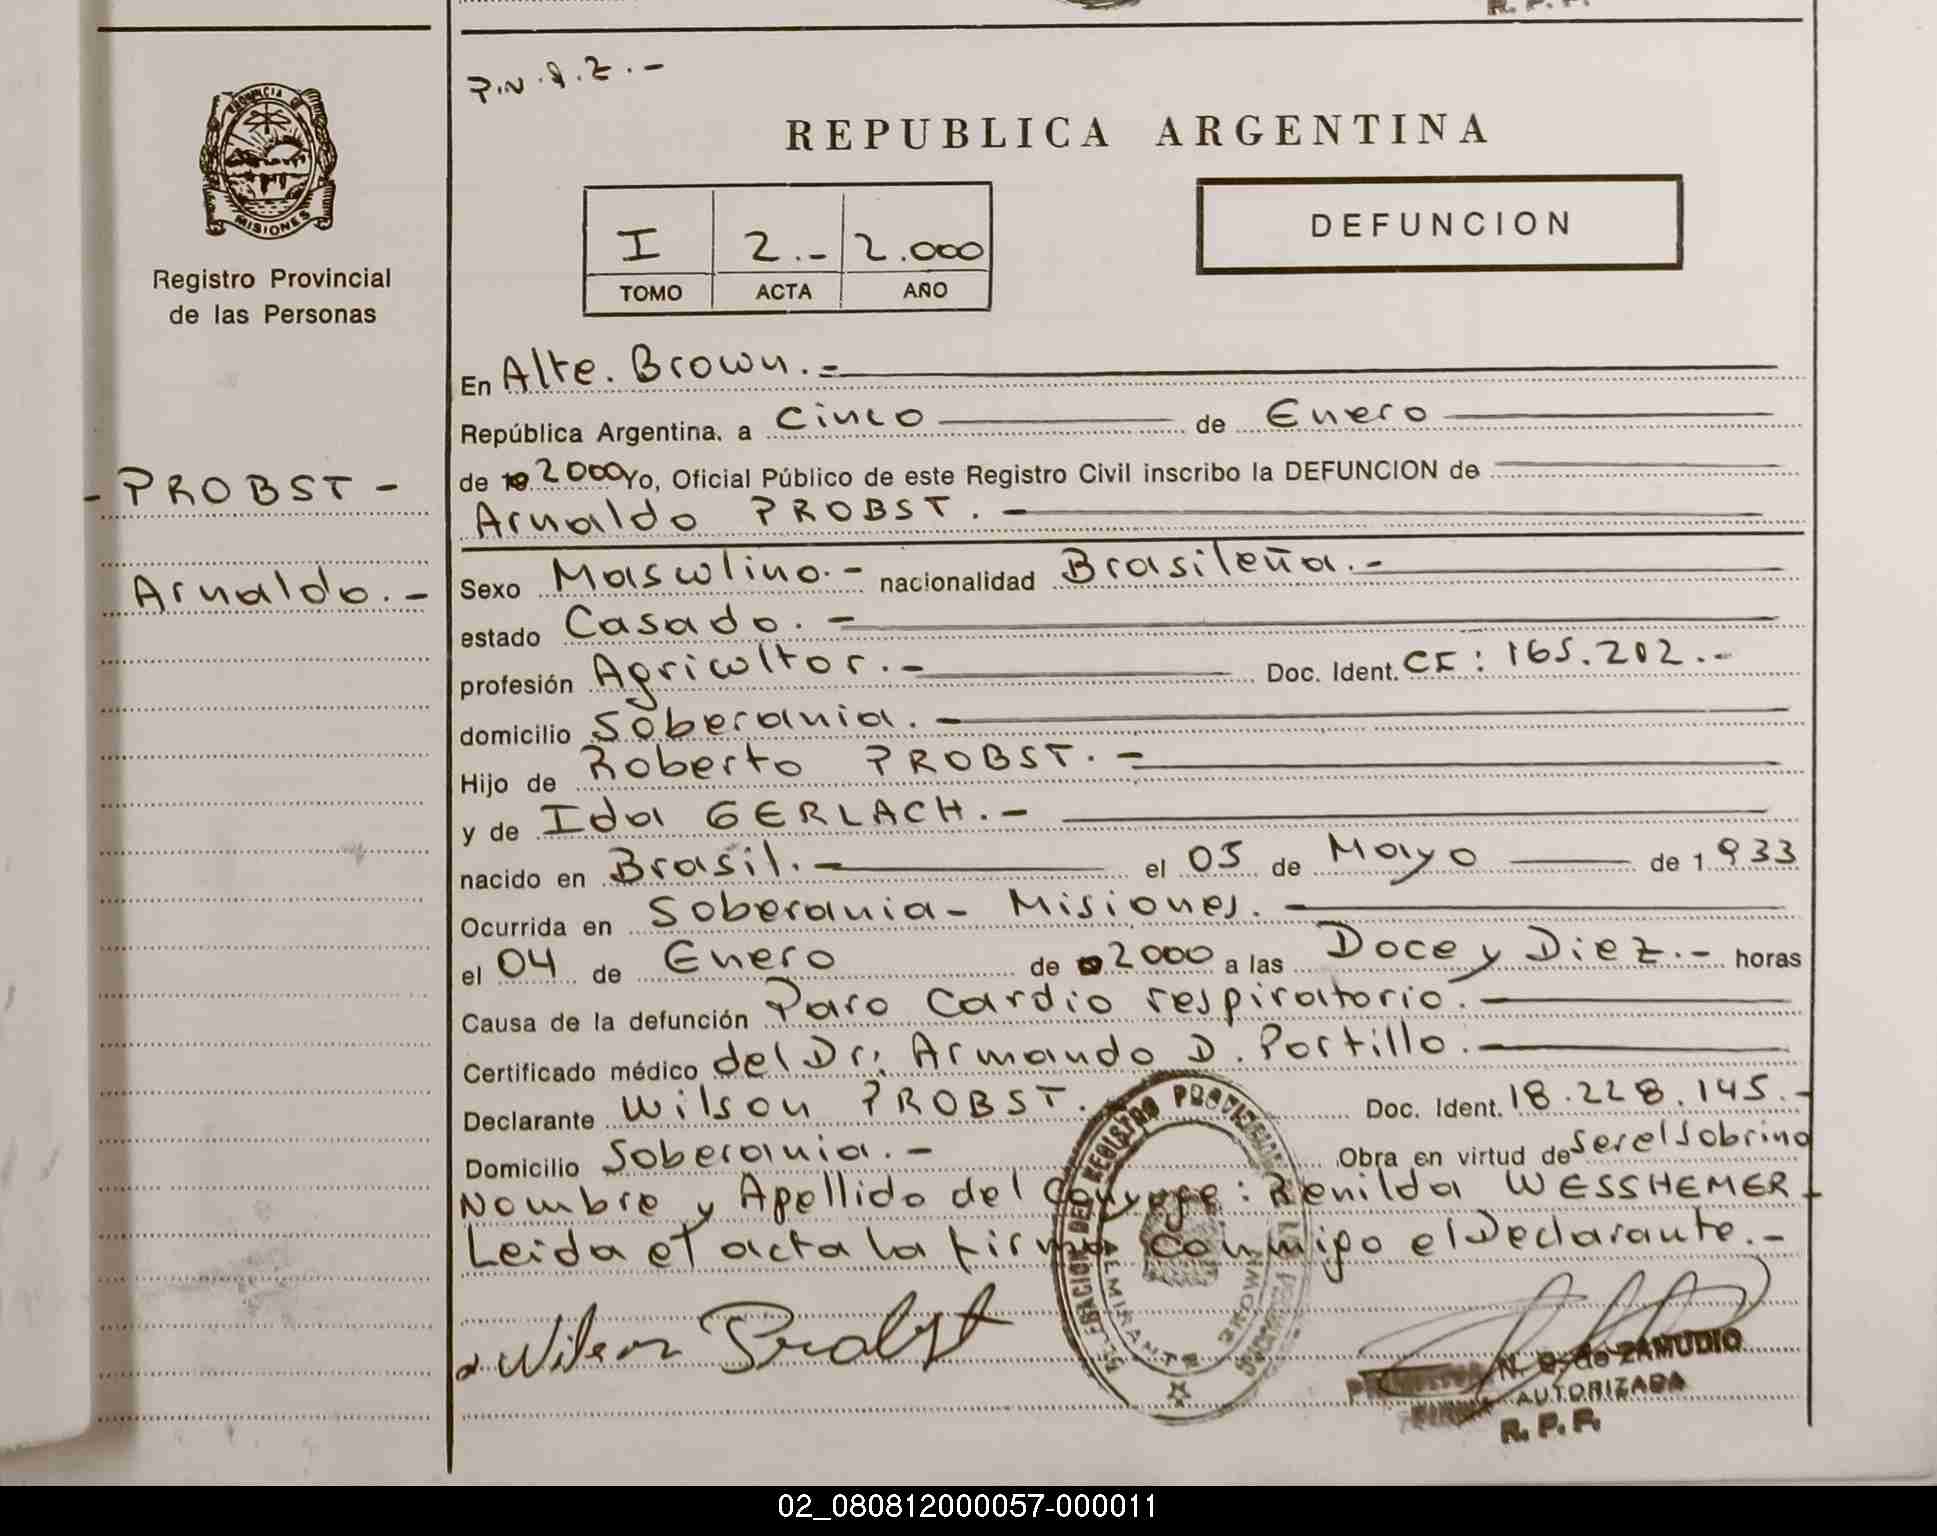 P.N.Q.Z.-
REPUBLICA ARGENTINA
PROVINCIA DE
MISIONES
Registro Provincial
de las Personas
I 2.- 2.000
TOMO ACTA AÑO
DEFUNCION
- PROBST -
Arnaldo.-
En Alte. Brown.=
República Argentina, a Cinco de Enero
de 2000 Yo, Oficial Público de este Registro Civil inscribo la DEFUNCION de
Arnaldo PROBST.-
Sexo Masculino.- nacionalidad Brasileña.-
estado Casado.-
profesión Agricultor.- Doc. Ident. CI: 165.202.-
domicilio Soberania.-
Hijo de Roberto PROBST.-
y de Ida GERLACH.-
nacido en Brasil.- el 05 de Mayo de 1.933
Ocurrida en Soberania- Misiones.-
el 04 de Enero de 2000 a las Doce y Diez.- horas
Causa de la defunción Paro Cardio respiratorio.-
Certificado médico del Dr: Armando D. Portillo.-
Declarante Wilson PROBST. Doc. Ident. 18.228.145.-
Domicilio Soberania.- Obra en virtud de Ser el Sobrino
Nombre y Apellido del Conyuge: Renilda WESSHEMER-
Leida el acta la firma conmigo el Declarante.-
Wilson Probst
DELEGACION DEL REGISTRO PROVINCIAL
ALMIRANTE BROWN
MISIONES
N. B. de ZAMUDIO
AUTORIZADA
R. P. P.
02_080812000057-000011